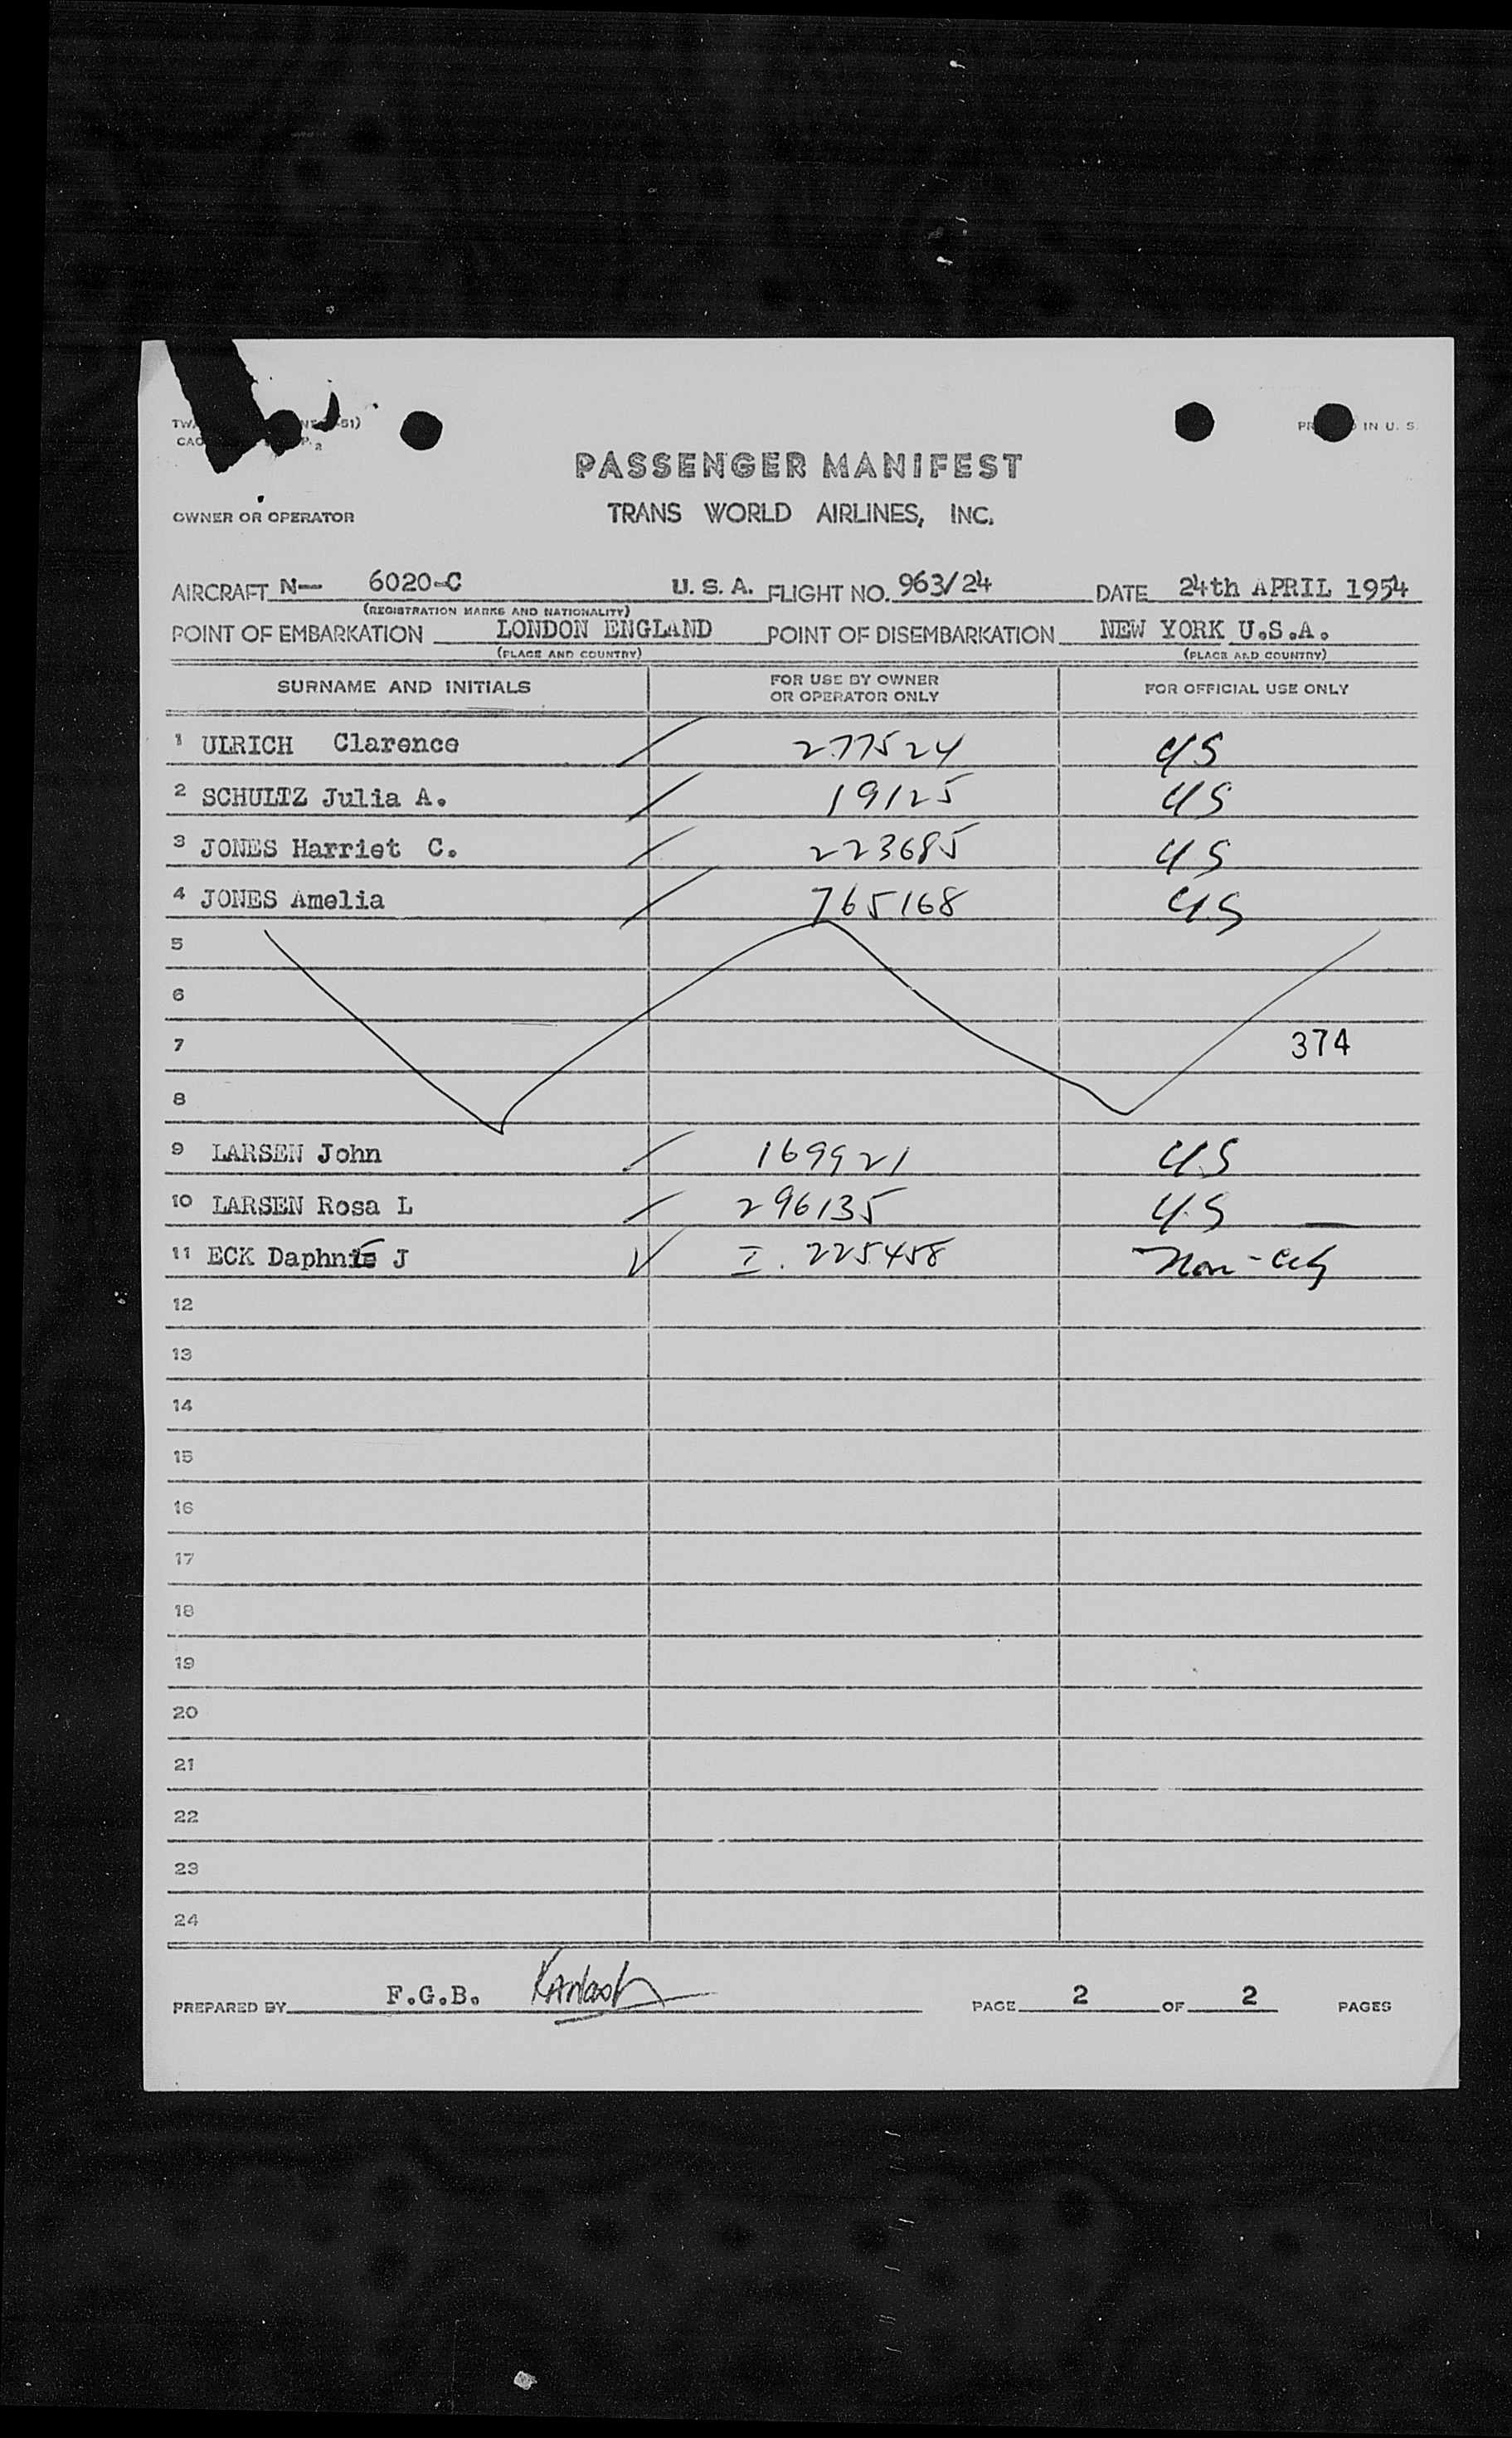 PASSENGER MANIFEST
OWNER OR OPERATOR TRANS WORLD AIRLINES, INC.
AIRCRAFT N— 6020-C U. S. A. FLIGHT NO. 963/24 DATE 24th APRIL 1954
(REGISTRATION MARKS AND NATIONALITY)
POINT OF EMBARKATION LONDON ENGLAND POINT OF DISEMBARKATION NEW YORK U.S.A.
(PLACE AND COUNTRY) (PLACE AND COUNTRY)
SURNAME AND INITIALS FOR USE BY OWNER OR OPERATOR ONLY FOR OFFICIAL USE ONLY
1 ULRICH Clarence 277524 US
2 SCHULTZ Julia A. 19125 US
3 JONES Harriet C. 223685 US
4 JONES Amelia 765168 US
5
6
7 374
8
9 LARSEN John 169921 US
10 LARSEN Rosa L 296135 US
11 ECK Daphne J I. 225458 Non-
12
13
14
15
16
17
18
19
20
21
22
23
24
PREPARED BY F.G.B. PAGE 2 OF 2 PAGES